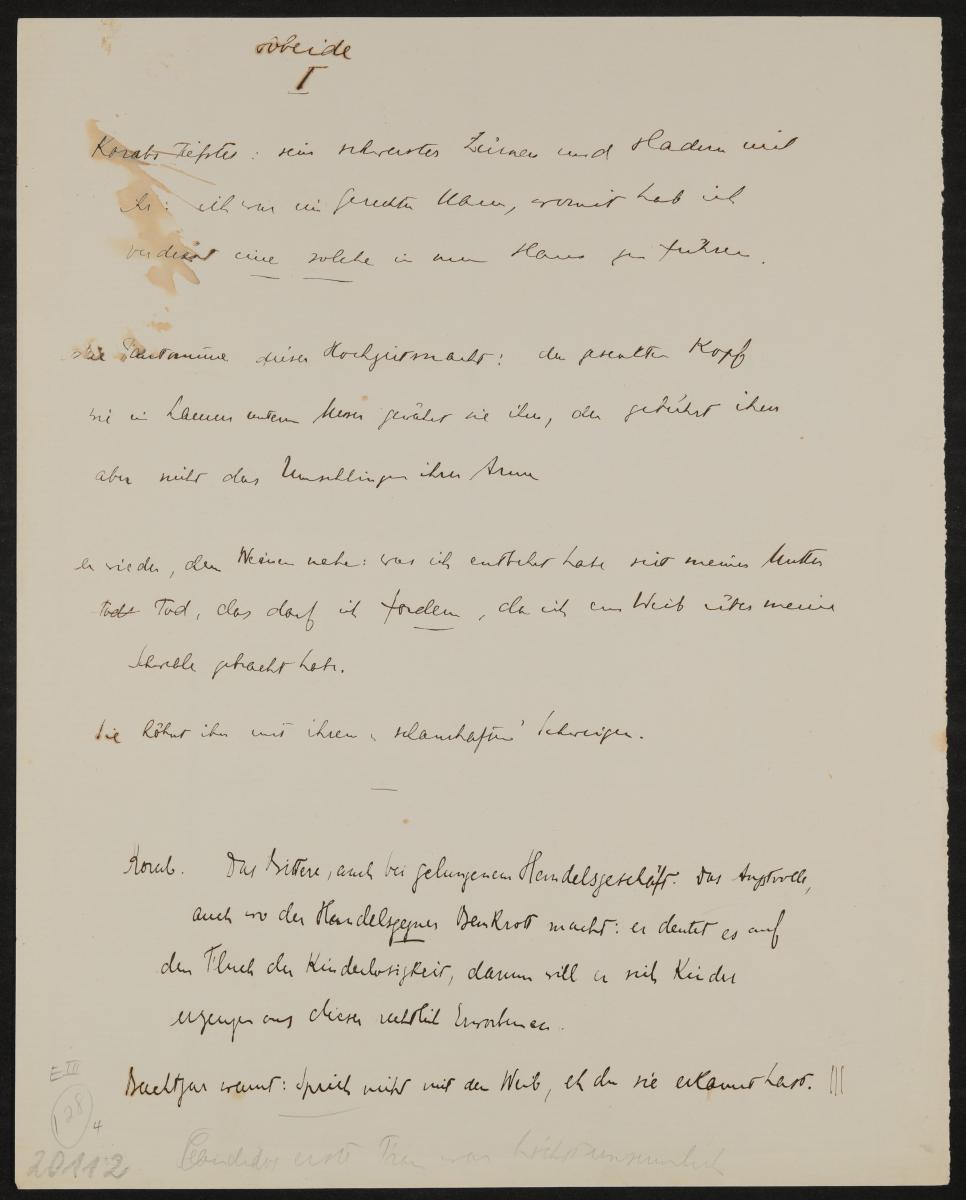 Sobeide
I
Korabs Tiefstes: sein schwerstes Zürnen und Hadern mit
ihr: ich war ein gerechter Mann, womit hab ich
verdient eine solche in mein Haus zu führen.
Die Pantomime dieser Hochzeitsnacht: den Kopf
wie ein Lamm unterm Messer gewährt sie ihm, der gebührt ihm
aber nicht das Umschlingen ihrer Arme
er wieder, dem Weinen nahe: was ich entbehrt habe seit meiner Mutter
Tod, das darf ich fordern, da ich ein Weib über meine
Schwelle gebracht habe.
Sie höhnt ihn mit ihrem „schamhaften" Schweigen.
Korab. Das Bittere, auch bei gelungenem Handelsgeschäft. Das Angstvolle,
auch wo der Handelsgegner Bankrott macht: er deutet es auf
den Fluch der Kinderlosigkeit, darum will er sich Kinder
erzeugen aus dieser rechtlich Erworbenen.
Bachtjar warnt: Sprich nicht mit dem Weib, eh du sie erkannt hast. |||
E III
128
4
20112
erste Frau war